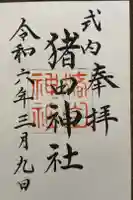 奉拝
式内
猪田神社
令和六年三月九日